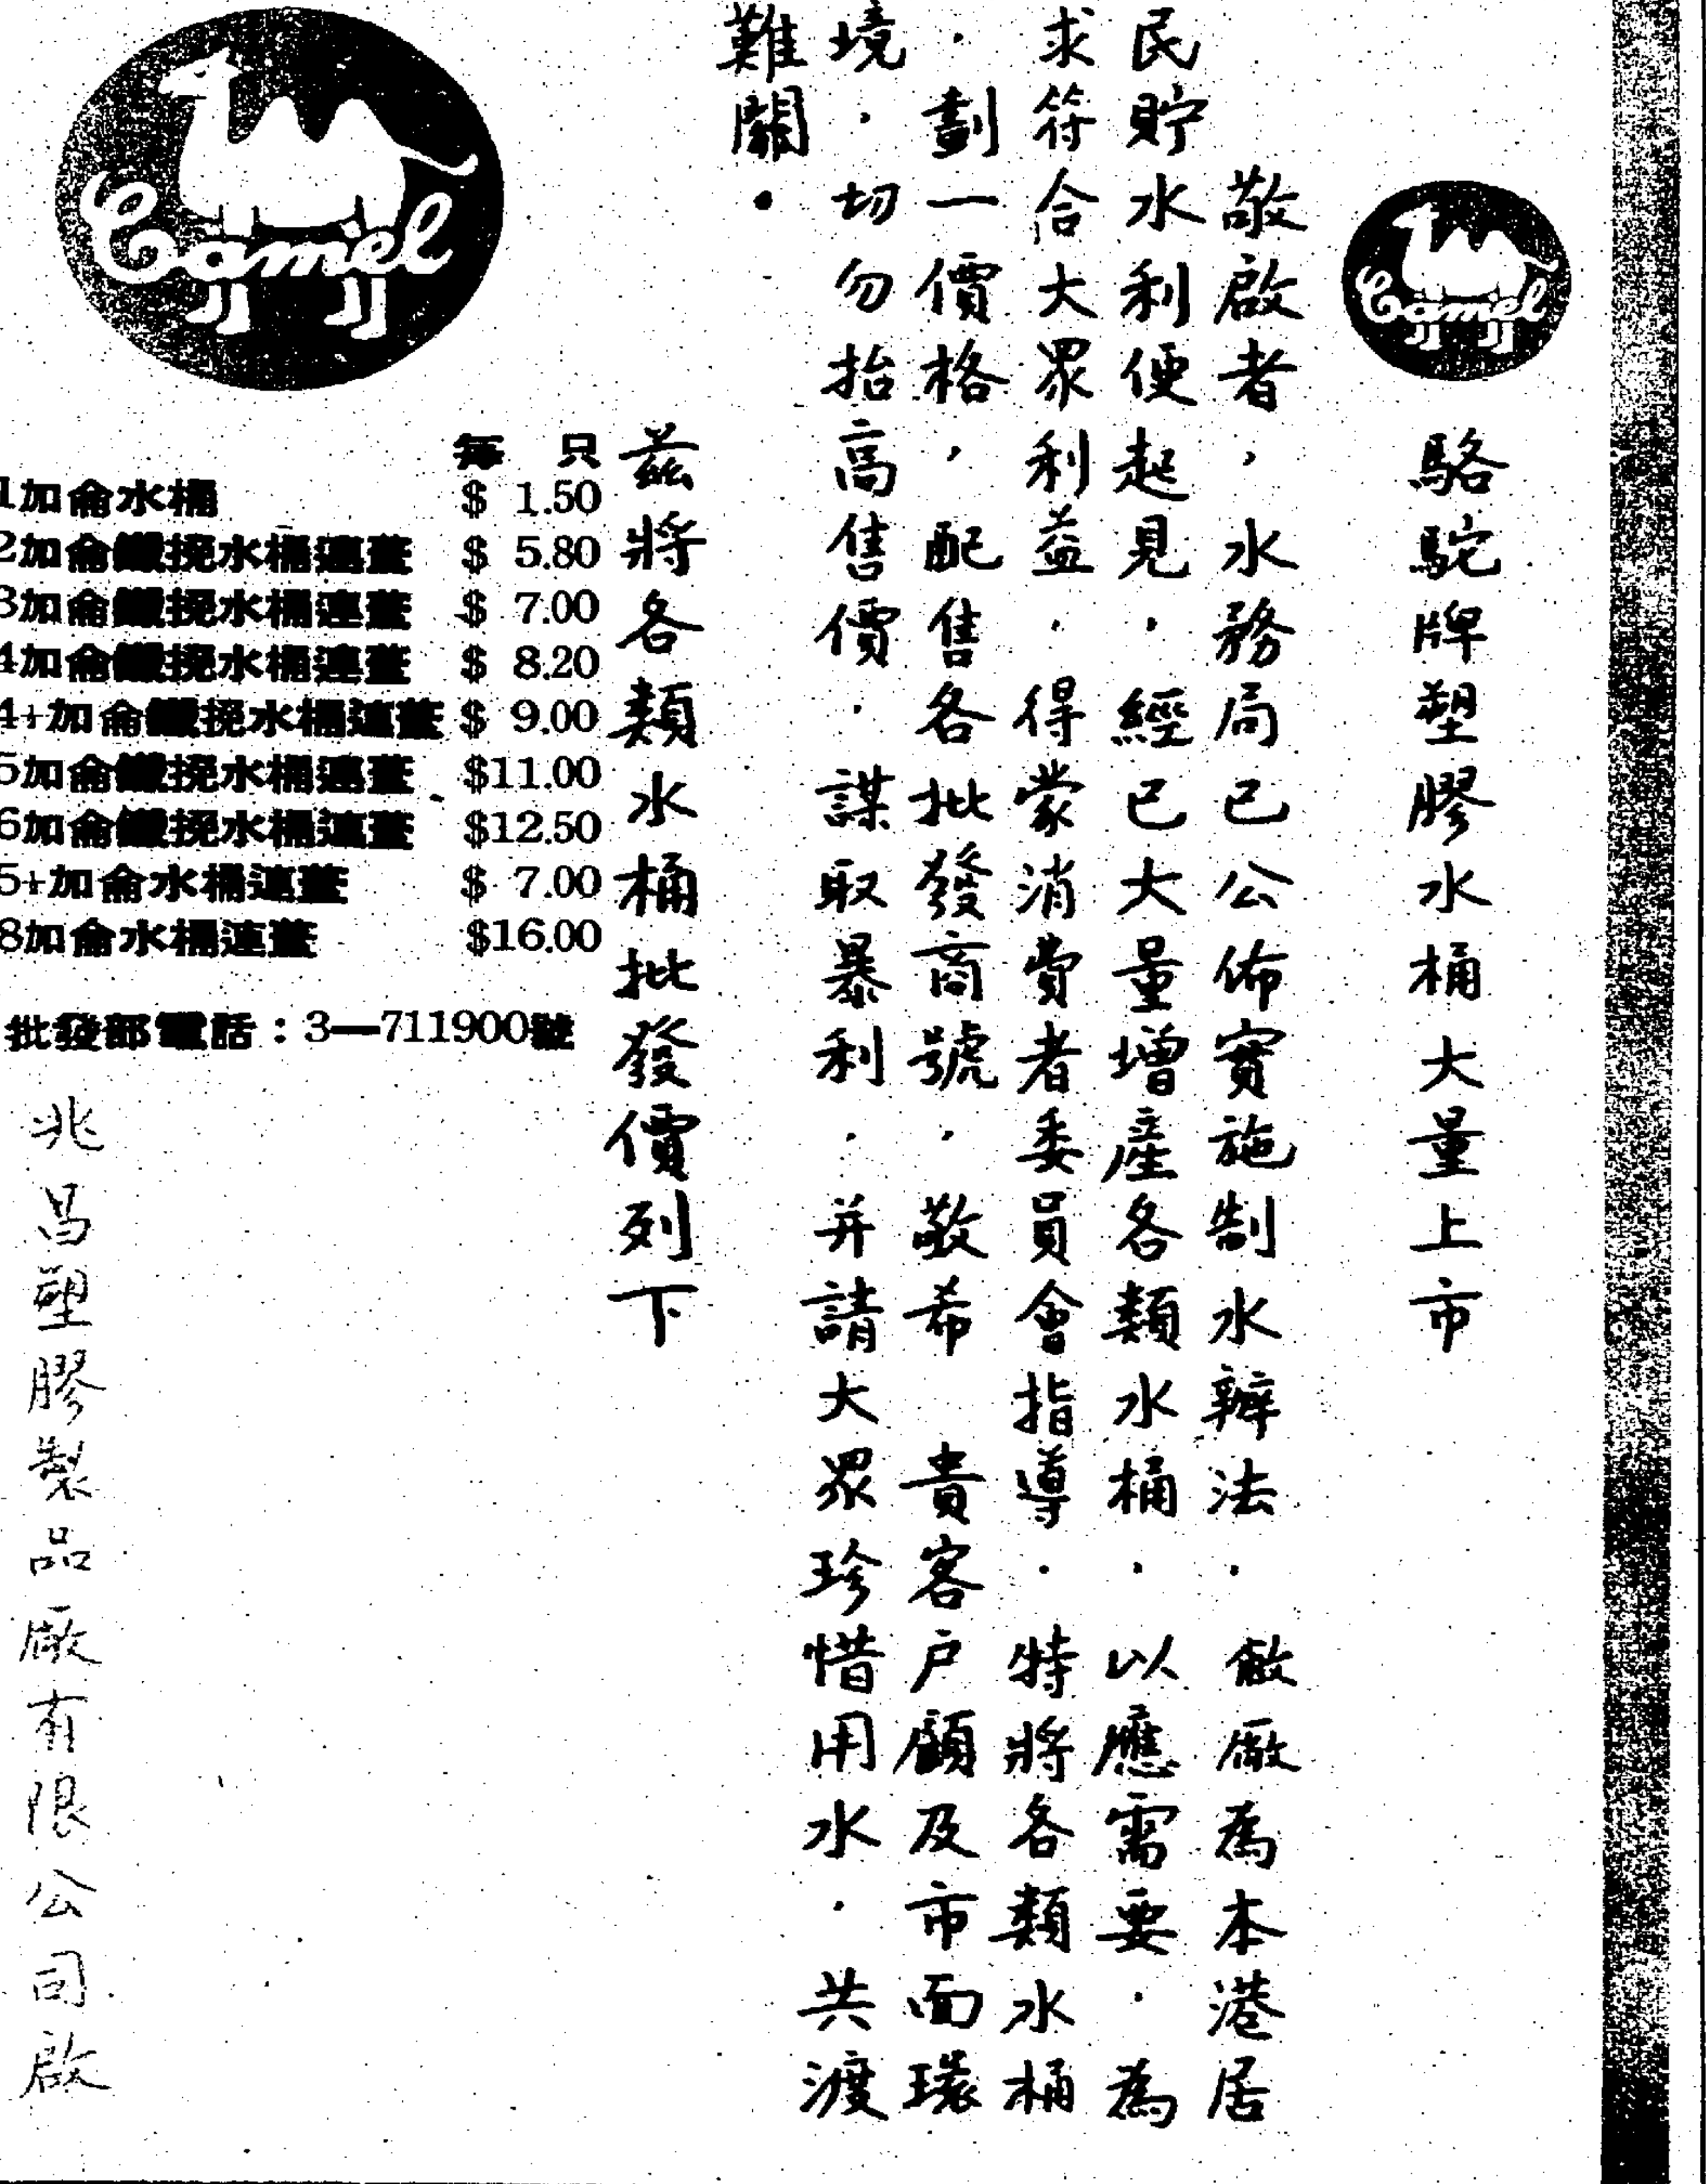 Camel
駱駝牌塑膠水桶大量上市
敬啟者，水務局已公佈實施制水辦法．敝廠為本港居
民貯水利便起見．經已大量增產各類水桶．以應需要．為
求符合大眾利益．得蒙消費者委員會指導．特將各類水桶
．劃一價格，配售各批發商號．敬希 貴客户顧及市面環
境．切勿抬高售價．謀取暴利．并請大眾珍惜用水．共渡
難關．
茲將各類水桶批發價列下
Camel
每 只
1加侖水桶 $ 1.50
2加侖鐵挽水桶連蓋 $ 5.80
3加侖鐵挽水桶連蓋 $ 7.00
4加侖鐵挽水桶連蓋 $ 8.20
4+加侖鐵挽水桶連蓋 $ 9.00
5加侖鐵挽水桶連蓋 $11.00
6加侖鐵挽水桶連蓋 $12.50
5+加侖水桶連蓋 $ 7.00
8加侖水桶連蓋 $16.00
批發部電話：3—711900號
兆昌塑膠製品廠有限公司啟